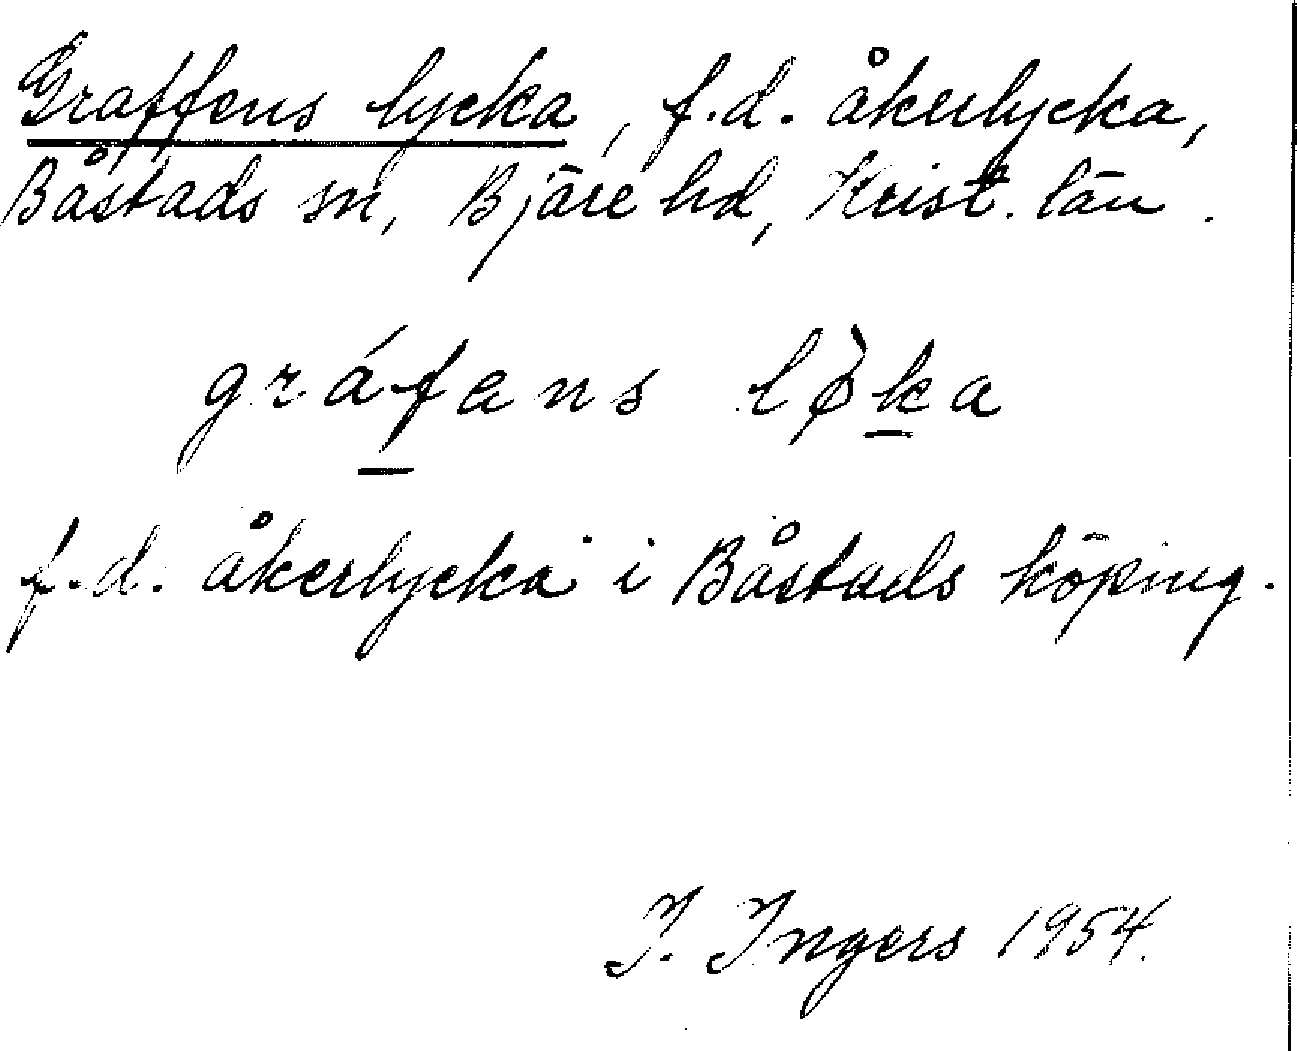 Graffens lycka, f.d. åkerlycka,
Båstads sn, Bjäre hd, Krist. län.
gráfans lø̀ka
f.d. åkerlycka i Båstads köping.
I. Ingers 1954.